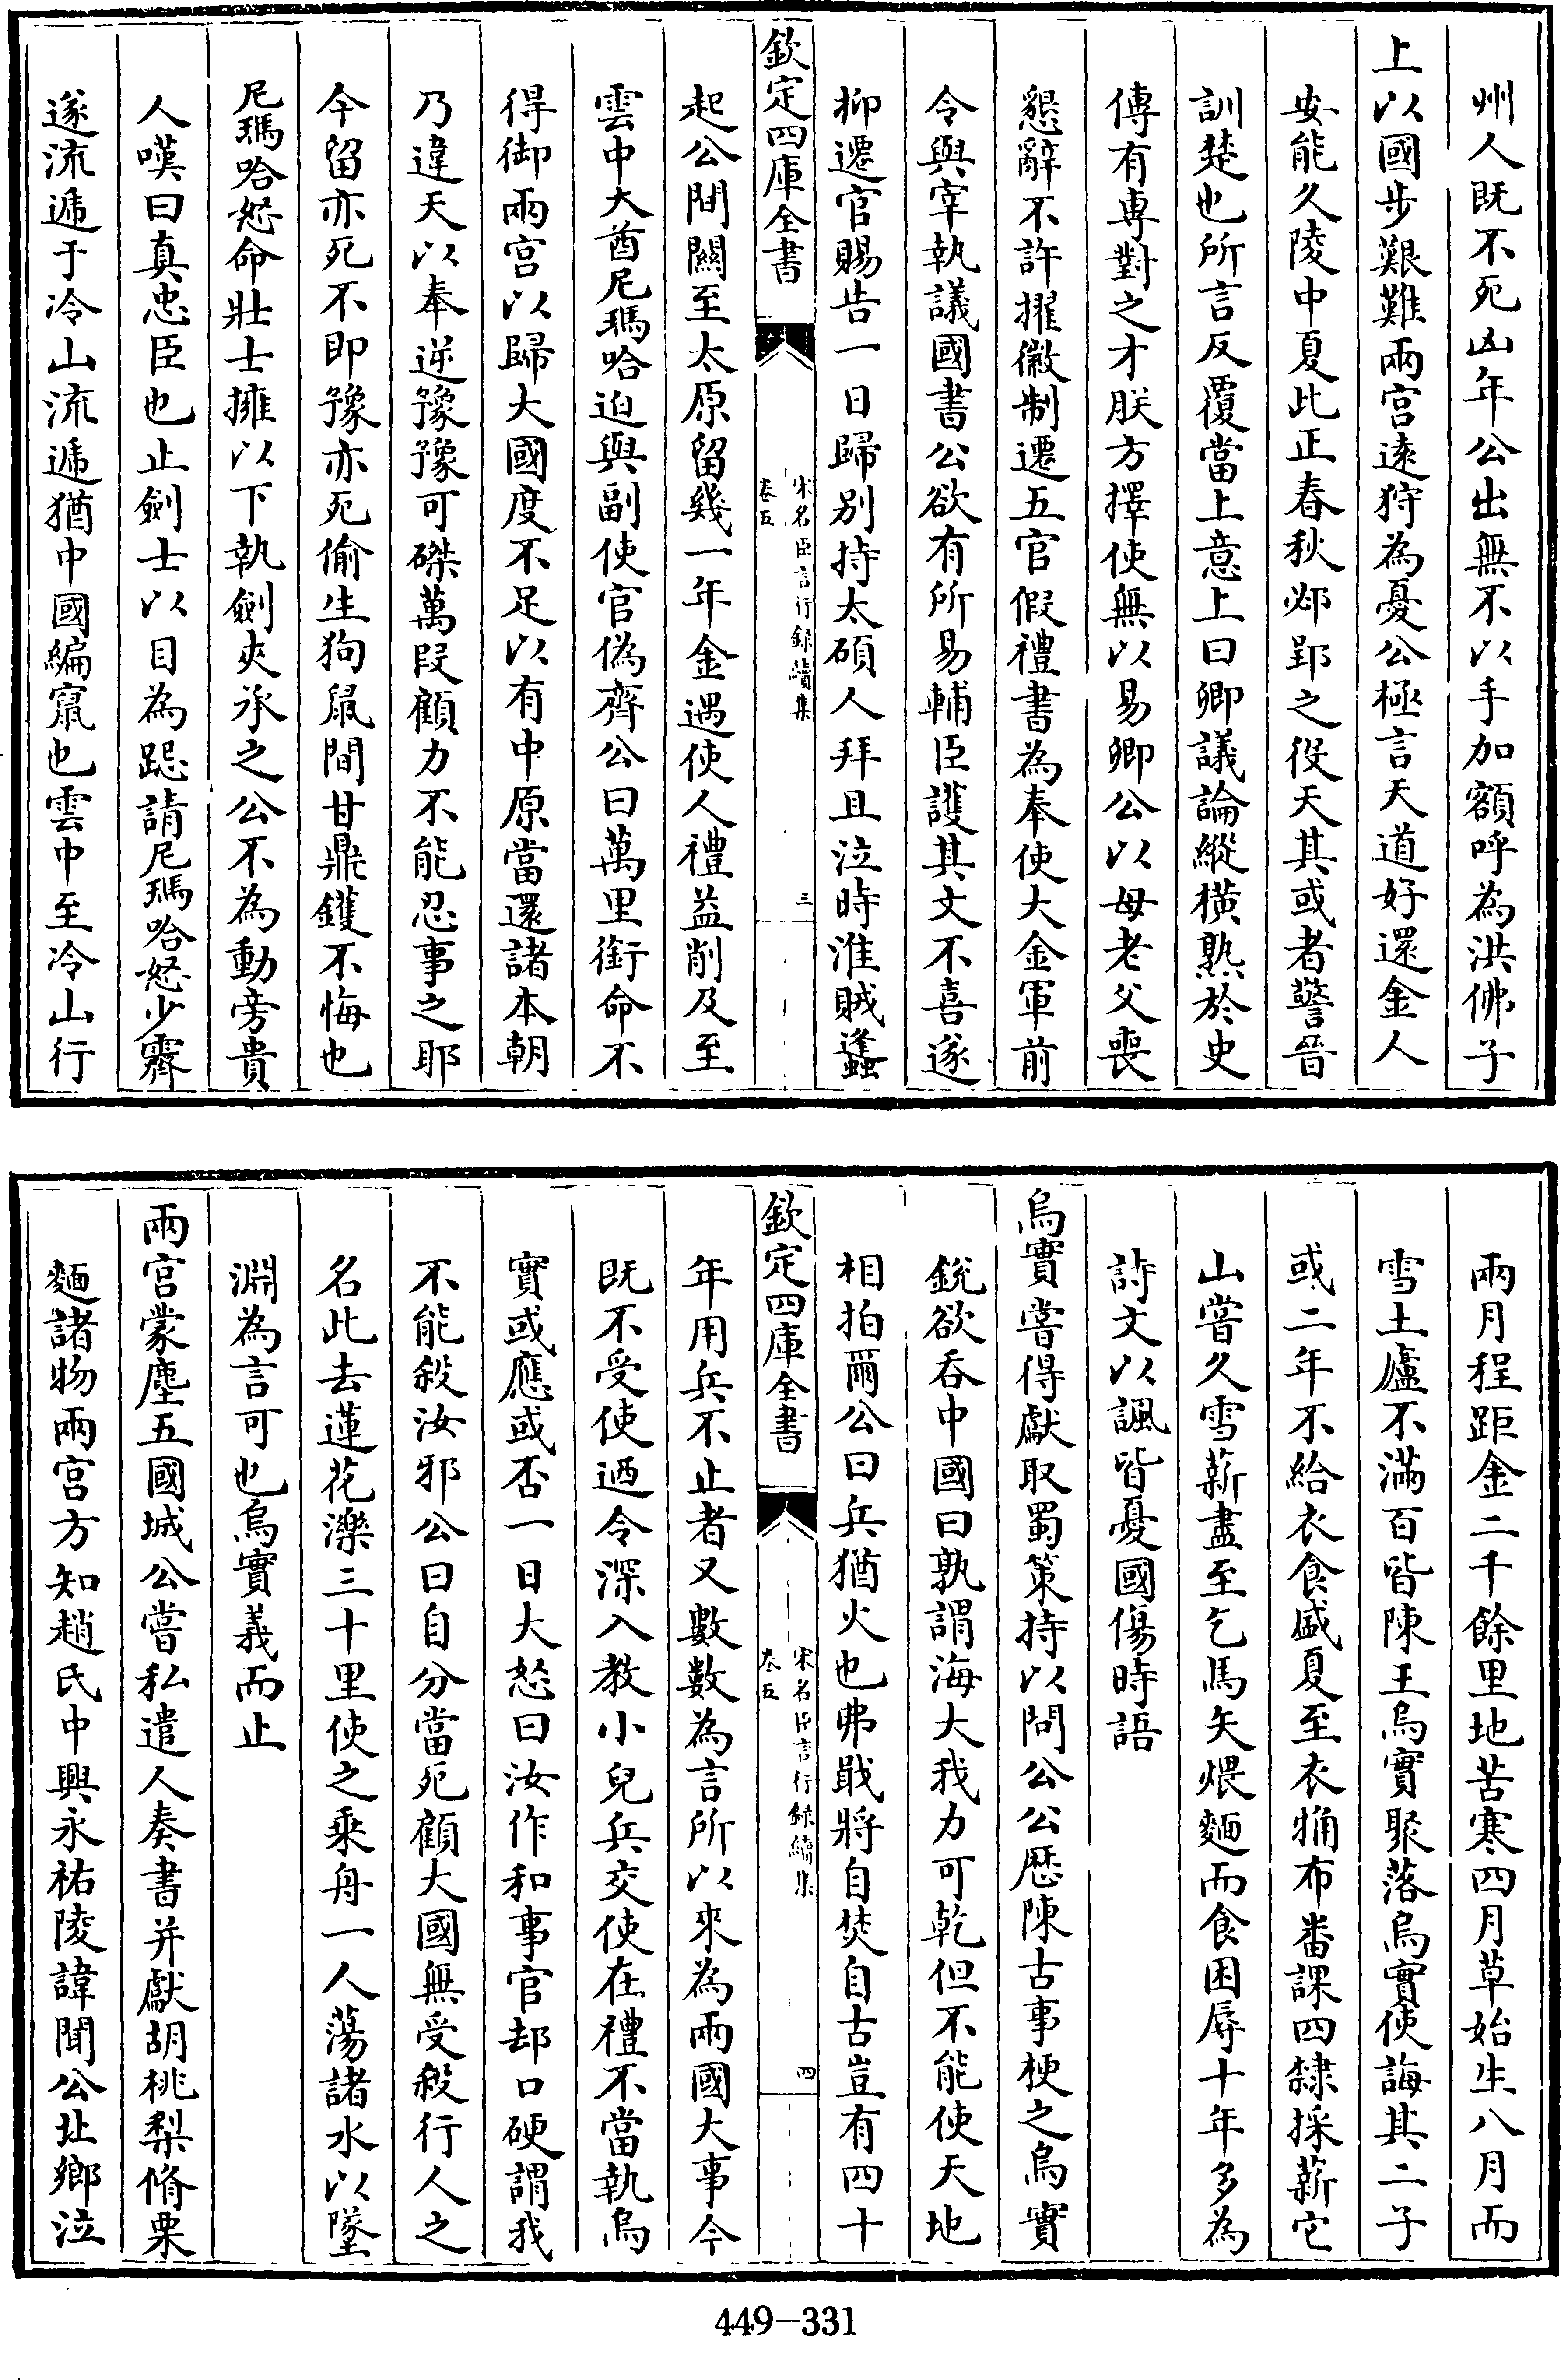 州人既不死凶年公出無不以手加額呼為洪佛子
上以國步艱難兩宮遠狩為憂公極言天道好還金人
安能久陵中夏此正春秋邲郢之役天其或者警晉
訓楚也所言反覆當上意上曰卿議論縱橫熟於史
傳有專對之才朕方擇使無以易卿公以母老父喪
懇辭不許擢徽制遷五官假禮書為奉使大金軍前
令與宰執議國書公欲有所易輔臣護其文不喜遂
抑遷官賜告一日歸别持太碩人拜且泣時淮賊蠭
欽定四庫全書
宋名臣言行録續集
卷五
三
起公間關至太原留幾一年金遇使人禮益削及至
雲中大酋尼瑪哈迫與副使官偽齊公曰萬里銜命不
得御兩宮以歸大國度不足以有中原當還諸本朝
乃違天以奉逆豫豫可磔萬段顧力不能忍事之耶
今留亦死不即豫亦死偷生狗鼠間甘鼎鑊不悔也
尼瑪哈怒命壯士擁以下執劍夾承之公不為動旁貴
人嘆曰真忠臣也止劍士以目為跽請尼瑪哈怒少霽
遂流遞于冷山流遞猶中國編竄也雲中至冷山行
兩月程距金二千餘里地苦寒四月草始生八月而
雪土廬不滿百皆陳王烏實聚落烏實使誨其二子
或二年不給衣食盛夏至衣觕布番課四隸採薪它
山嘗久雪薪盡至乞馬矢煨麵而食困辱十年多為
詩文以諷皆憂國傷時語
烏實嘗得獻取蜀策持以問公公歴陳古事梗之烏實
銳欲吞中國曰孰謂海大我力可乾但不能使天地
相拍爾公曰兵猶火也弗戢將自焚自古豈有四十
欽定四庫全書
宋名臣言行録續集
卷五
四
年用兵不止者又數數為言所以來為兩國大事今
既不受使迺令深入教小兒兵交使在禮不當執烏
實或應或否一日大怒曰汝作和事官却口硬謂我
不能殺汝邪公曰自分當死顧大國無受殺行人之
名此去蓮花濼三十里使之乘舟一人蕩諸水以墜
淵為言可也烏實義而止
兩宮蒙塵五國城公嘗私遣人奏書并獻胡桃梨脩栗
麵諸物兩宮方知趙氏中興永祐陵諱聞公北鄉泣
449-331